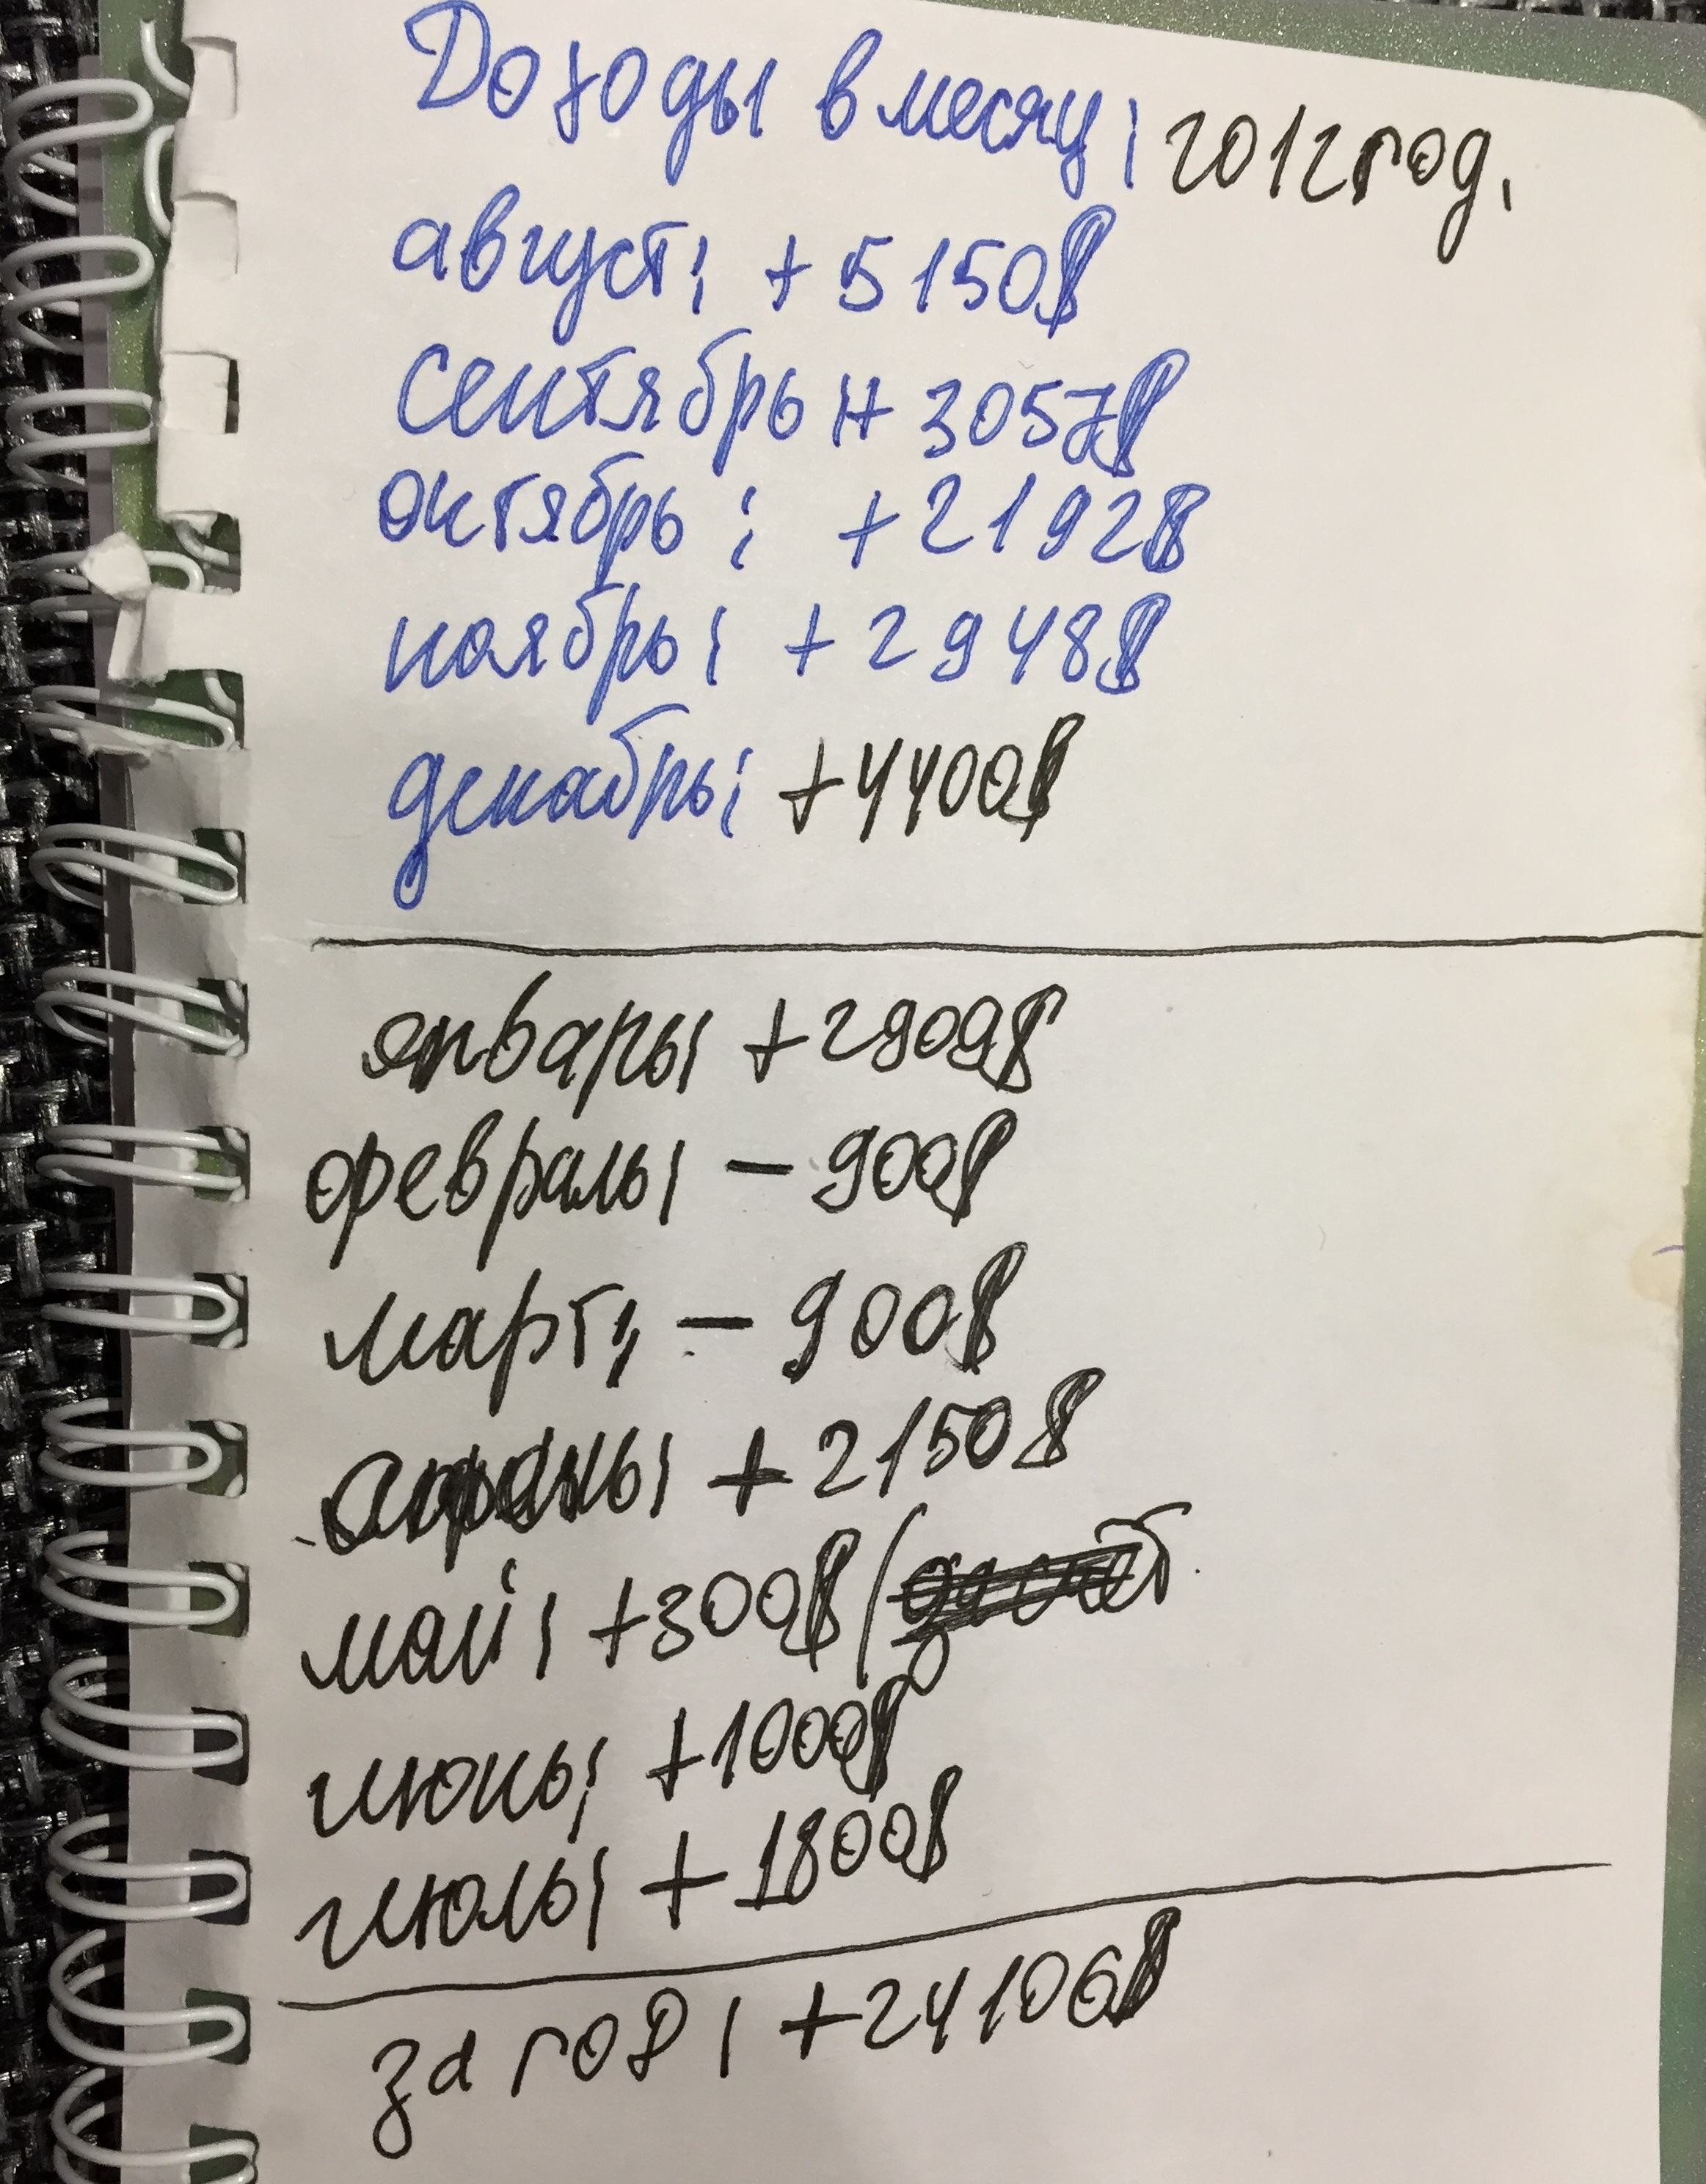 Доходы в месяц: 2012 год.
август: + 5150$
сентябрь: + 3057$
октябрь: + 2192$
ноябрь: + 2948$
декабрь: +4400$
январь: +2909$
февраль: - 900$
март: - 900$
апрель: + 2150$
май: +300$ (
июнь: +1000$
июль: + 1800$
за год: +24106$